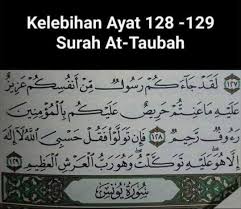 Kelebihan Ayat 128 -129
Surah At-Taubah
١٢٧ لَقَدْ جَآءَكُمْ رَسُولٌ مِّنْ أَنفُسِكُمْ عَزِيزٌ
عَلَيْهِ مَا عَنِتُّمْ حَرِيصٌ عَلَيْكُم بِٱلْمُؤْمِنِينَ
رَءُوفٌ رَّحِيمٌ ١٢٨ فَإِن تَوَلَّوْا فَقُلْ حَسْبِىَ ٱللَّهُ لَآ إِلَٰهَ
إِلَّا هُوَ عَلَيْهِ تَوَكَّلْتُ وَهُوَ رَبُّ ٱلْعَرْشِ ٱلْعَظِيمِ ١٢٩
سُورَةُ يُونُسَ